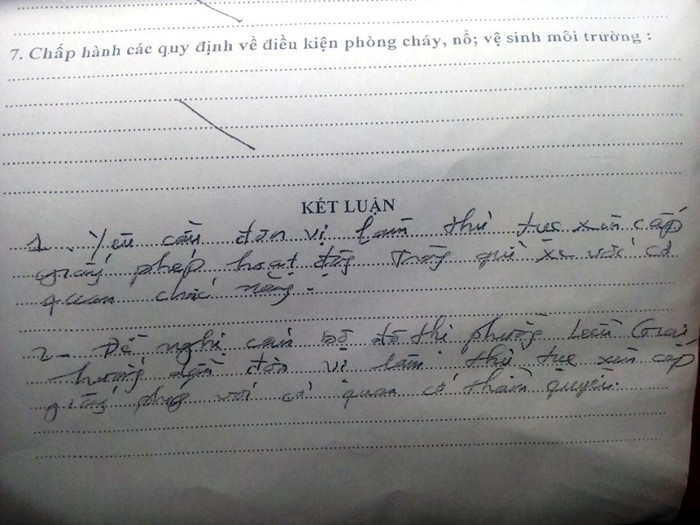 7. Chấp hành các quy định về điều kiện phòng cháy, nổ; vệ sinh môi trường :
KẾT LUẬN
1. Yêu cầu đơn vị làm thủ tục xin cấp
giấy phép hoạt động trông giữ xe với cơ
quan chức năng.
2- Đề nghị cán bộ đô thị phường
hướng dẫn đơn vị làm thủ tục xin cấp
giấy phép với cơ quan có thẩm quyền.